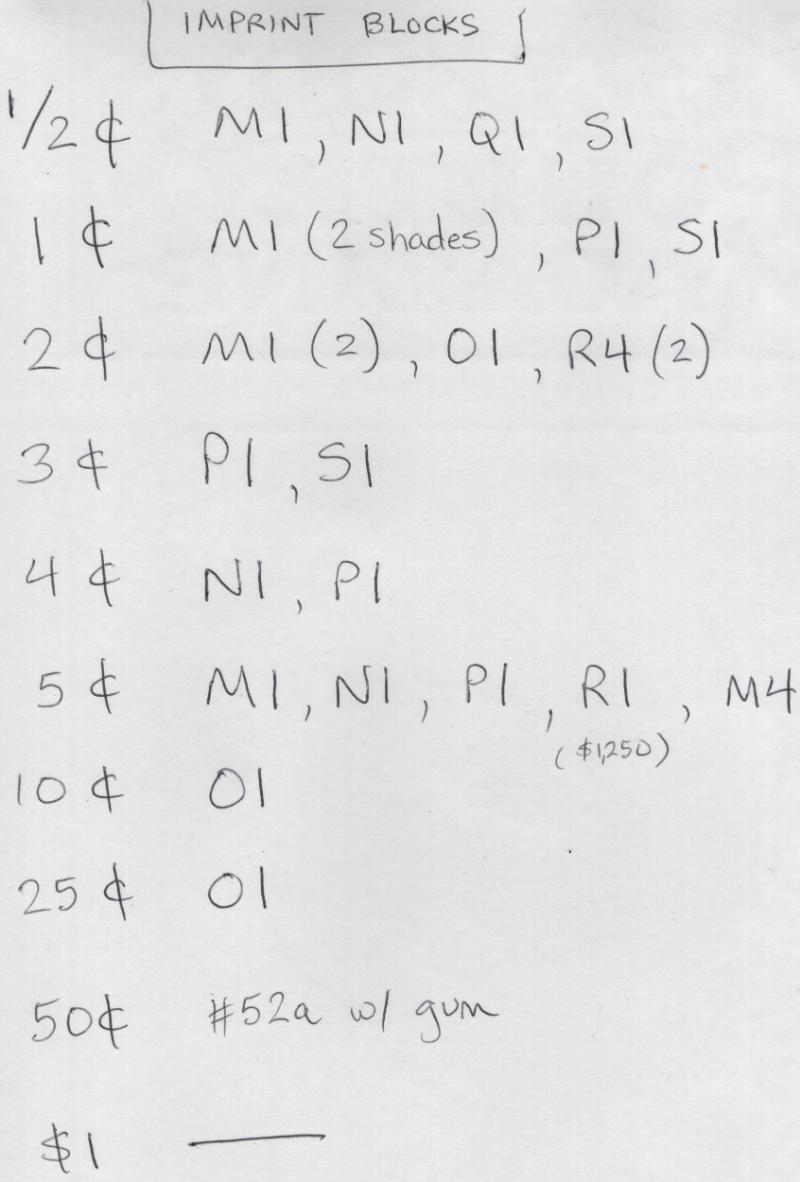 IMPRINT BLOCKS
1/2 ¢ M1, N1, Q1, S1
1 ¢ M1 (2 shades), P1, S1
2 ¢ M1 (2), O1, R4 (2)
3 ¢ P1, S1
4 ¢ N1, P1
5 ¢ M1, N1, P1, R1, M4
($1,250)
10 ¢ O1
25 ¢ O1
50¢ #52a w/ gum
$1 —